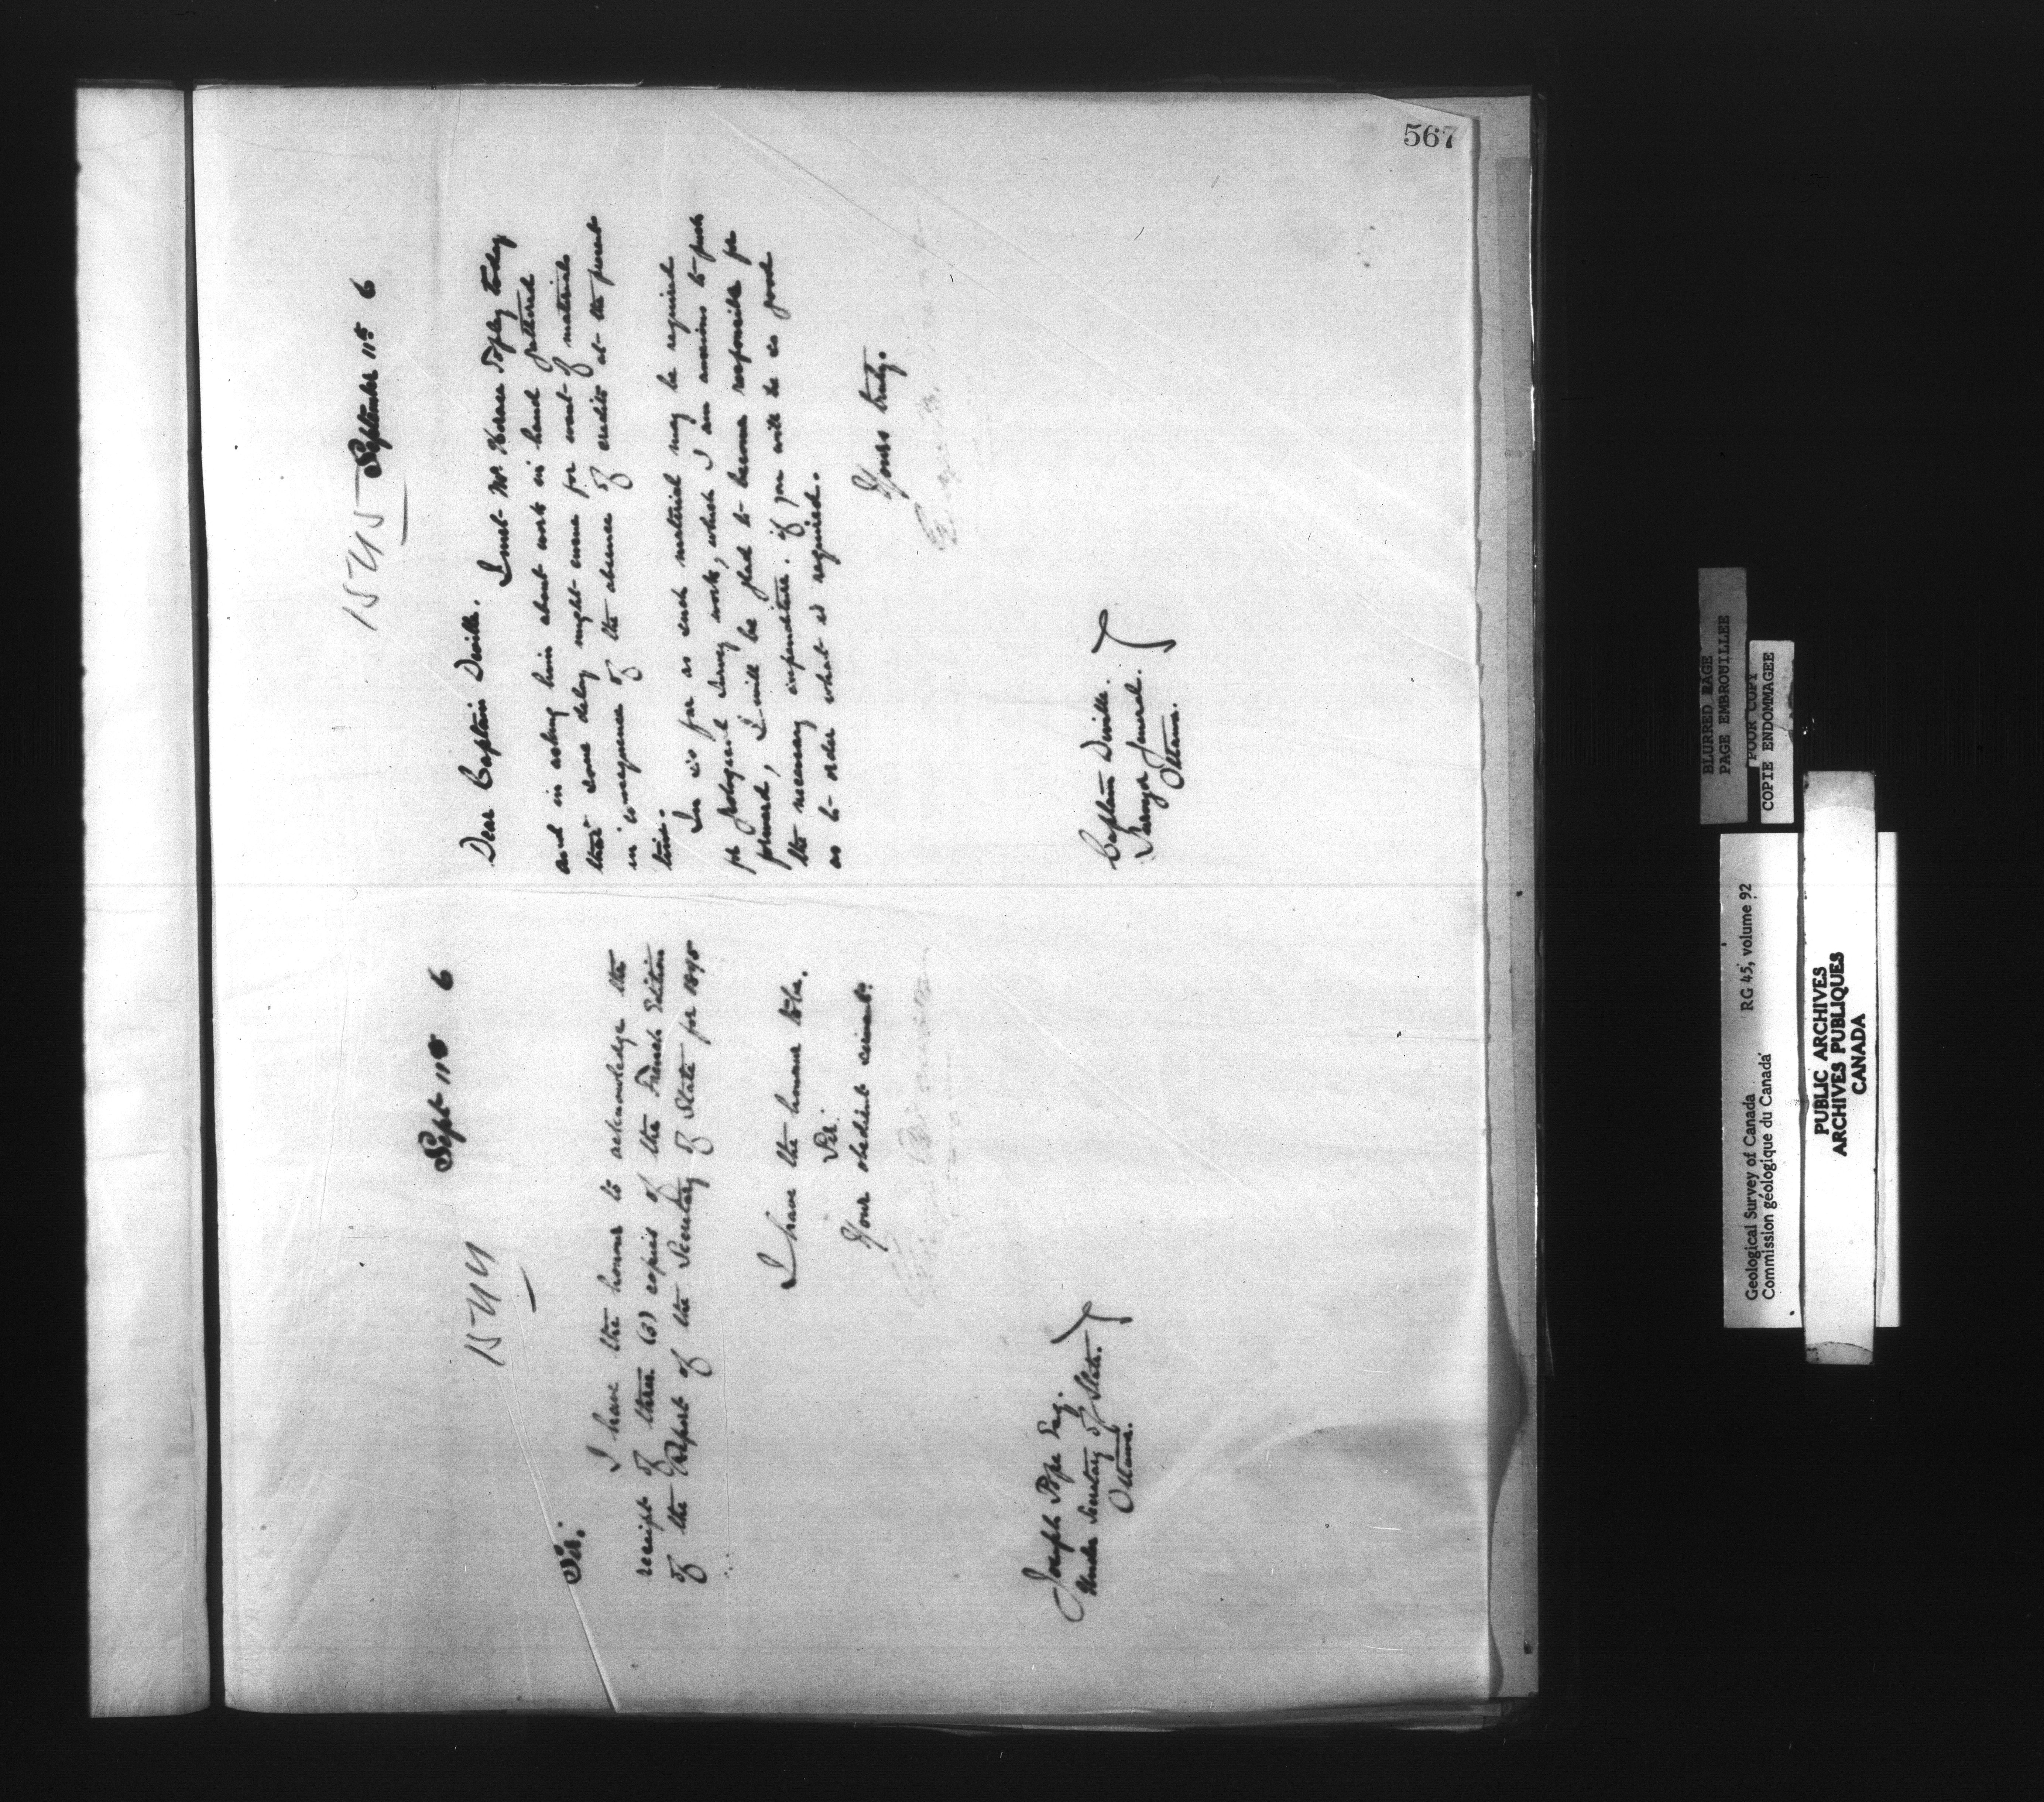 567
1544
Sept 11th 6
Sir.
I have the honour to acknowledge the
receipt of three (3) copies of the French Edition
of the Report of the Secretary of State for 1895
I have the honour to be.
Sir.
Your obedient servant.
Joseph Pope Esq.
Under Secretary of State.
Ottawa.
1545
September 11th 6
Dear Captain Deville.
I met Mr. Horace Topley today
and in asking him about work in hand gathered
that some delay might ensue for want of material
in consequence of the absence of credits at the present
time.
In so far as such material may be required
for geological survey work, which I am anxious to push
forward, I will be glad to become responsible for
the necessary expenditure. if you will be so good
as to order what is required.
Yours truly.
Captain Deville.
Surveyor General.
Ottawa.
BLURRED PAGE
PAGE EMBROUILLEE
POOR COPY
COPIE ENDOMMAGEE
Geological Survey of Canada RG 45, volume 92
Commission géologique du Canada
PUBLIC ARCHIVES
ARCHIVES PUBLIQUES
CANADA